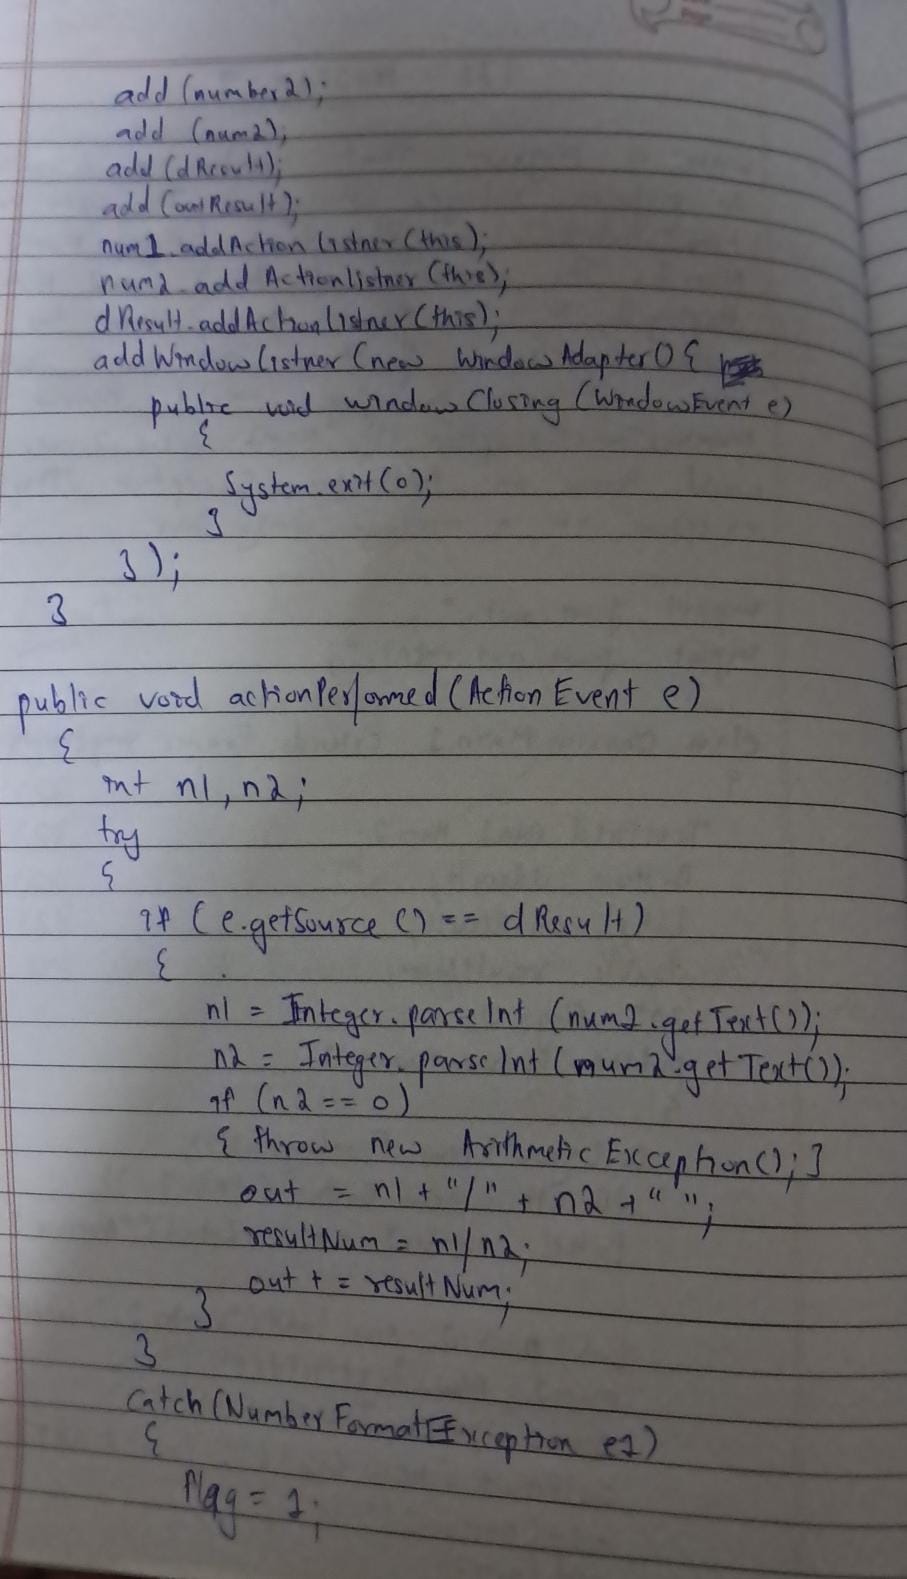 add (number2);
add (num2);
add (dResult);
add (outResult);
num1.addAction listner (this);
num2.add Actionlistner (this);
dResult.addActionlistner (this);
addWindowlistner (new WindowAdapter() {
public void windowClosing (WindowEvent e)
{
System.exit(0);
}
});
}
public void actionPerformed (Action Event e)
{
int n1, n2;
try
{
if (e.getSource () == dResult)
{
n1 = Integer.parseInt (num2.getText());
n2 = Integer.parseInt (num2.getText());
if (n2 == 0)
{ throw new Arithmetic Exception(); }
out = n1 + "/" + n2 + " ";
resultNum = n1/n2;
out += resultNum;
}
}
catch (Number Format Exception e1)
{
flag = 1;